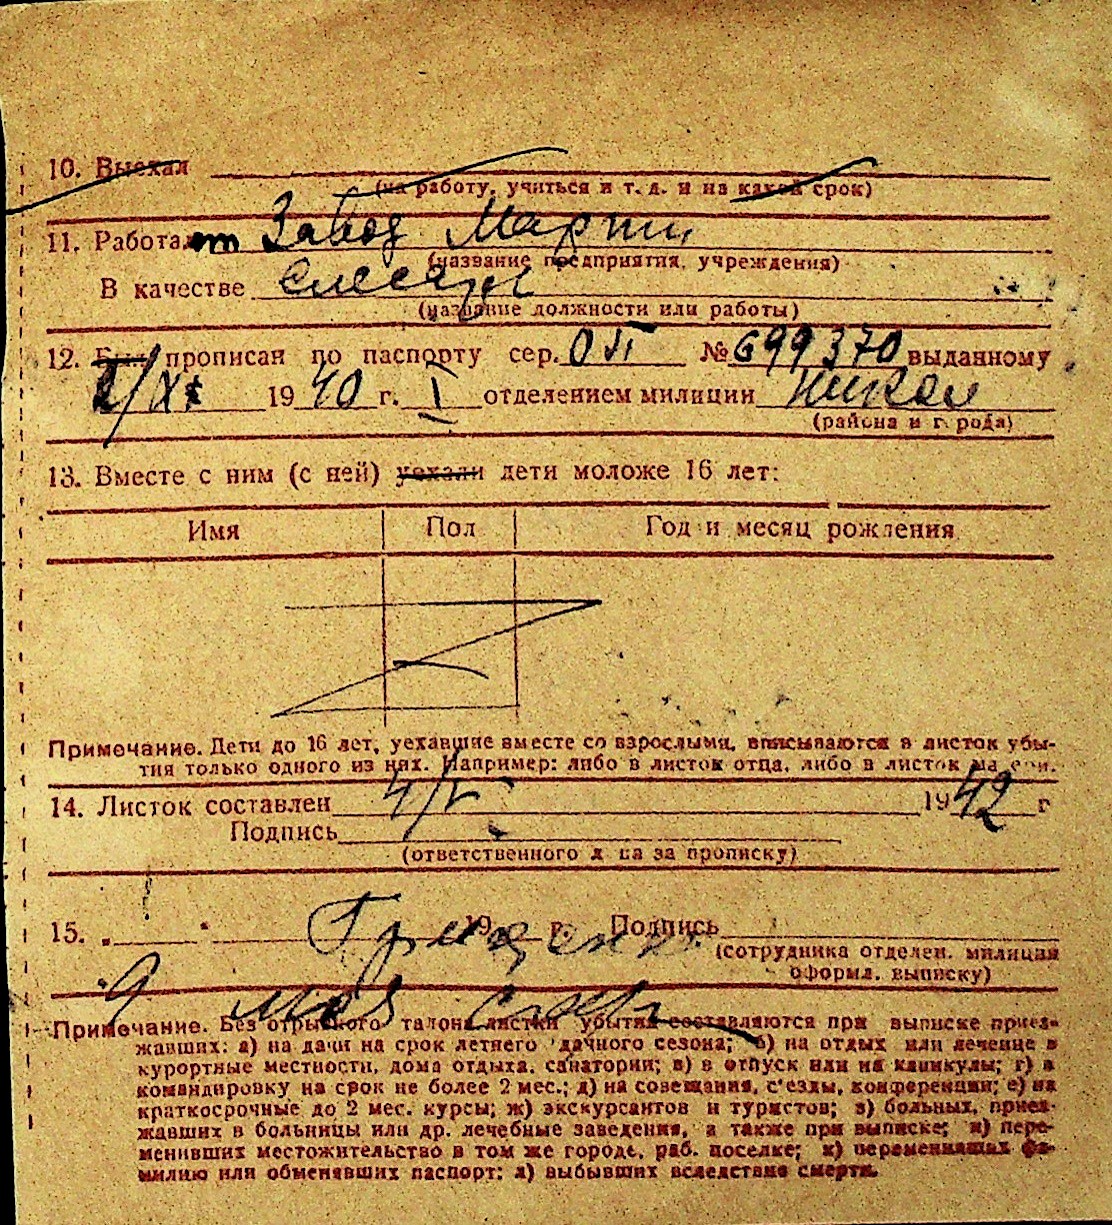 10. Выехал
(на работу, учиться и т. д. и на какой срок)
11. Работает Завод Марти
(название предприятия, учреждения)
В качестве слесарь
(название должности или работы)
12. Был прописан по паспорту сер. № 699370 выданному
1940 г. I отделением милиции
(района и города)
13. Вместе с ним (с ней) уехали дети моложе 16 лет:
Имя Пол Год и месяц рождения
Примечание. Дети до 16 лет, уехавшие вместе со взрослыми, вписываются в листок убы-
тия только одного из них. Например: либо в листок отца, либо в листок матери.
14. Листок составлен 4/V 1942 г
Подпись
(ответственного лица за прописку)
15. „ " Гриценко 19 г. Подпись
(сотрудника отделен. милиции
оформл. выписку)
Примечание. Без отрывного талона листки убытия составляются при выписке приез-
жавших: а) на дачи на срок летнего дачного сезона; б) на отдых или лечение в
курортные местности, дома отдыха, санатории; в) в отпуск или на каникулы; г) в
командировку на срок не более 2 мес.; д) на совещания, с'езды, конференции; е) на
краткосрочные до 2 мес. курсы; ж) экскурсантов и туристов; з) больных, приез-
жавших в больницы или др. лечебные заведения, а также при выписке; и) пере-
менивших местожительство в том же городе, раб. поселке; к) переменивших фа-
милию или обменявших паспорт; л) выбывших вследствие смерти.